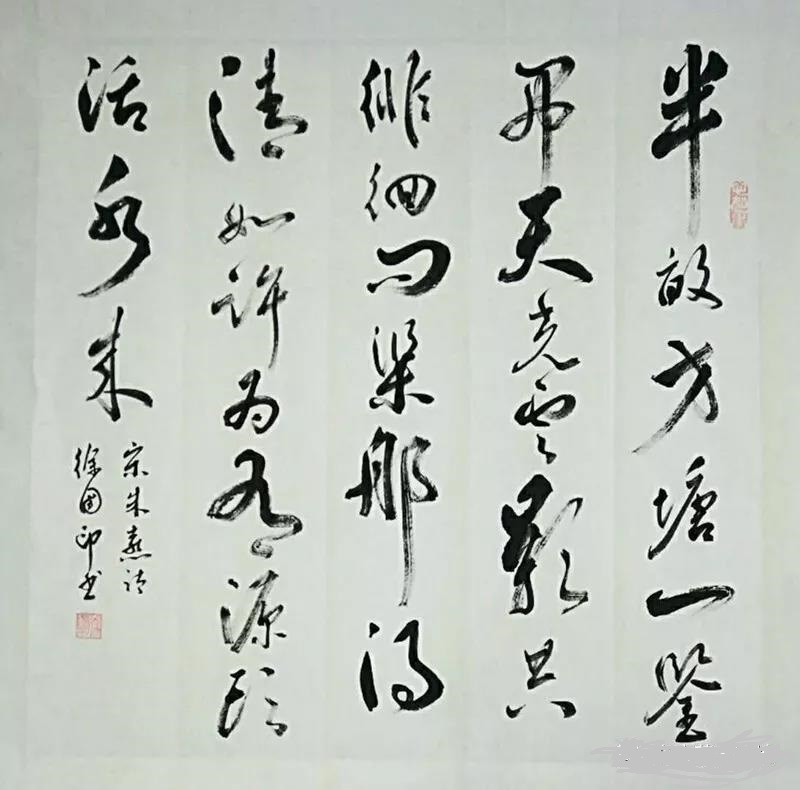 半畝方塘一鑒
开天光雲影共
徘徊问渠那得
清如許为有源头
活水来
宋朱熹诗
徐国印书